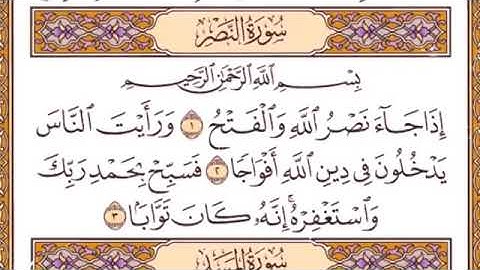 سُورَةُ النَّصْرِ
بِسْمِ اللَّهِ الرَّحْمَٰنِ الرَّحِيمِ
إِذَا جَآءَ نَصْرُ اللَّهِ وَالْفَتْحُ ١ وَرَأَيْتَ النَّاسَ
يَدْخُلُونَ فِي دِينِ اللَّهِ أَفْوَاجًا ٢ فَسَبِّحْ بِحَمْدِ رَبِّكَ
وَاسْتَغْفِرْهُ ۚ إِنَّهُ كَانَ تَوَّابًا ٣
سُورَةُ المَسَدِ